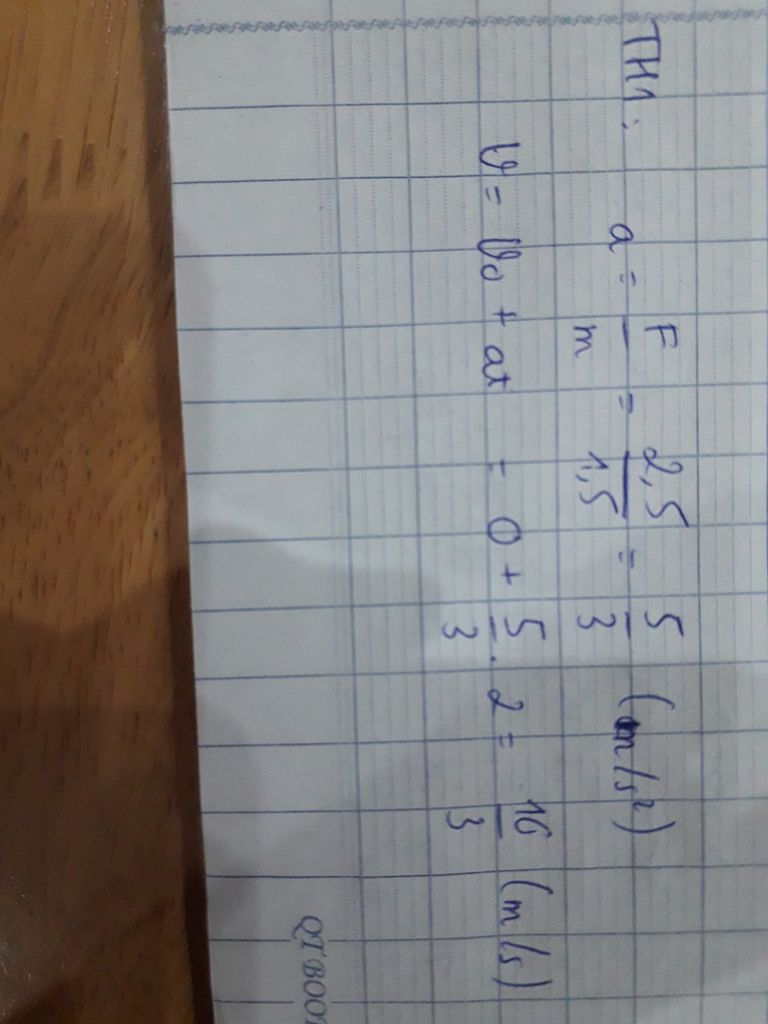 TH1: a = F/m = 2,5/1,5 = 5/3 (m/s²)
v = v₀ + at = 0 + 5/3 . 2 = 16/3 (m/s)